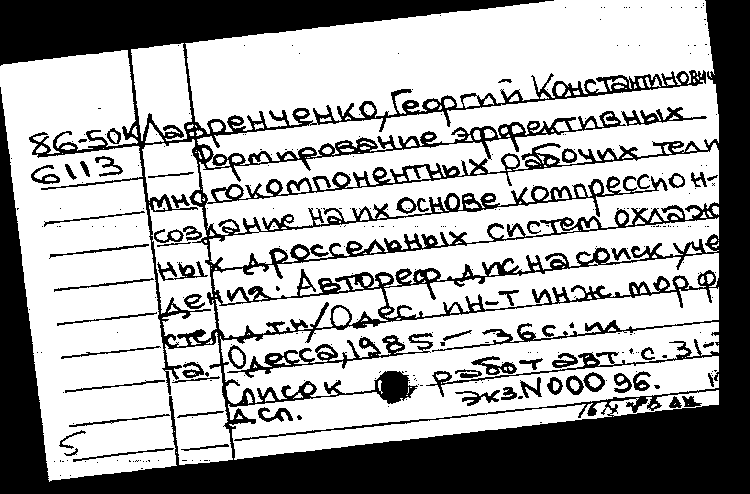 86-50к Лавренченко, Георгий Константинович
6113 Формирование эффективных
многокомпонентных рабочих тел и
создание на их основе компрессион-
ных дроссельных систем охлаж
дения: Автореф. дис. на соиск. уче
степ. д.т.н/Одес. ин-т инж. мор. фл
та.-Одесса, 1985.- 36 с.: ил.
Список работ авт.: с. 31-
Дсп. экз. N 00096.
5